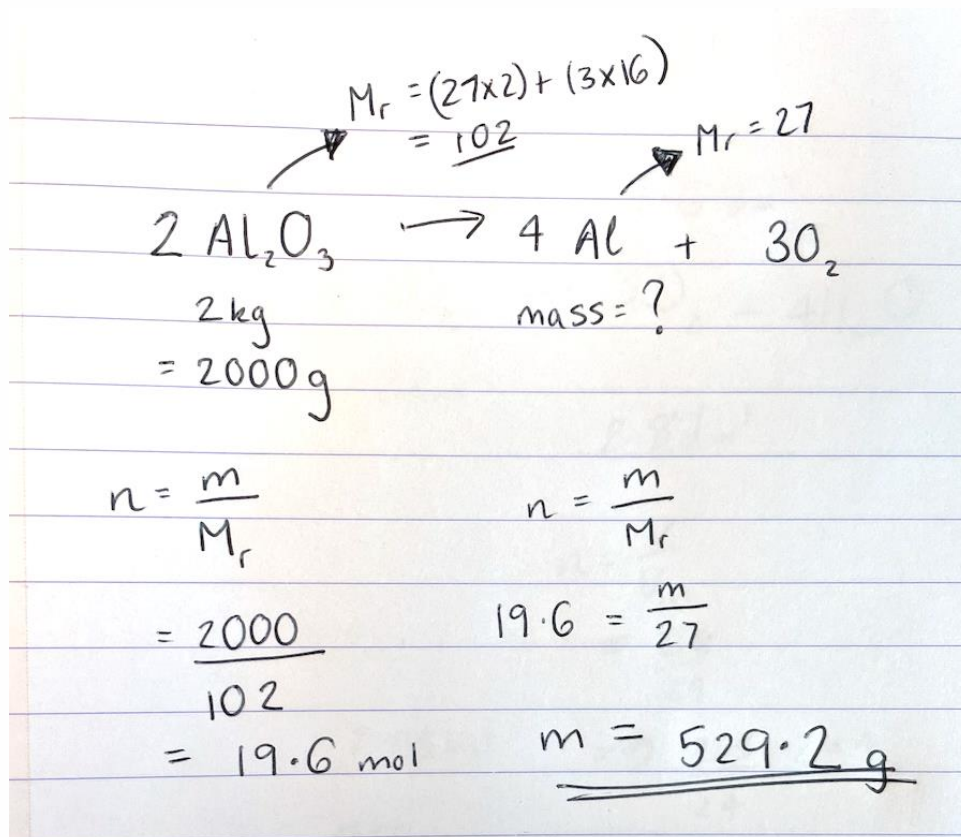 Mr = (27x2) + (3x16)
= 102
Mr = 27
2 Al₂O₃ → 4 Al + 3O₂
2kg
= 2000g
mass = ?
n = m/Mr
= 2000/102
= 19.6 mol
n = m/Mr
19.6 = m/27
m = 529.2 g